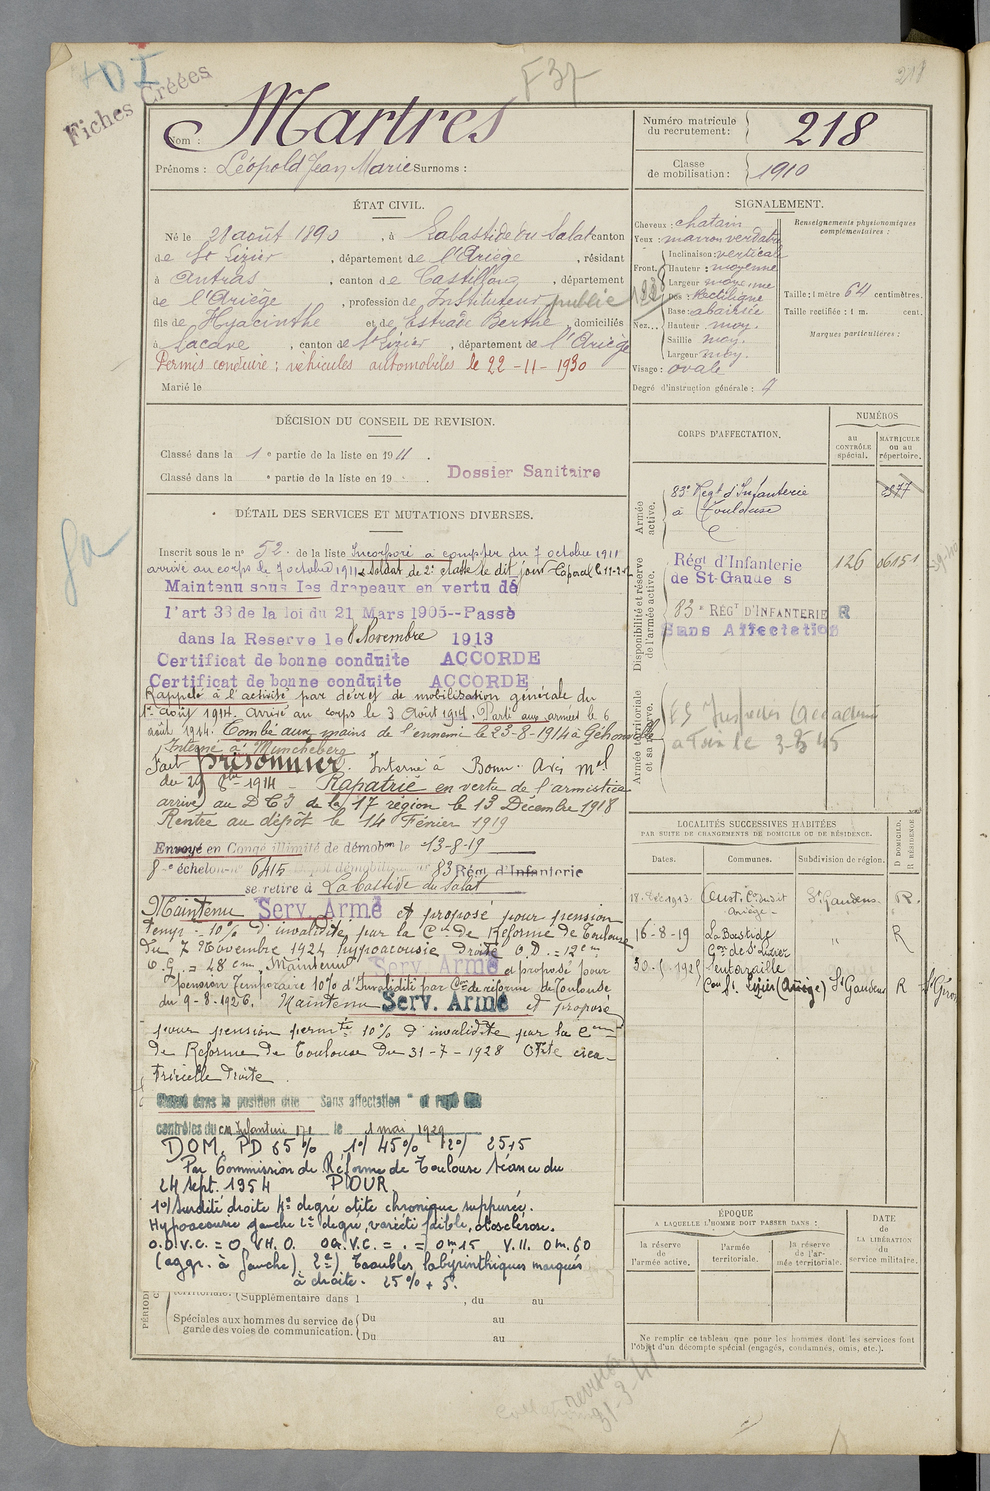 218
F 37
Fiches Créées
Nom : Martres
Prénoms : Léopold Jean Marie Surnoms :
Numéro matricule du recrutement : 218
Classe de mobilisation : 1910
ÉTAT CIVIL.
Né le 21 août 1890, à Labastide du Salat canton
de St Lizier, département de l'Ariège, résidant
à Antras, canton de Castillon, département
de l'Ariège, profession de Instituteur public
fils de Hyacinthe et de Estrade Berthe, domiciliés
à Lacave, canton de St Lizier, département de l'Ariège
Permis conduire : véhicules automobiles le 22-11-1930
Marié le
SIGNALEMENT.
Cheveux : chatain
Yeux : marron verdatre
Front. Inclinaison : verticale
Hauteur : moyenne
Largeur moyenne
Nez... Dos : Rectiligne
Base : abaissée
Hauteur moy.
Saillie moy.
Largeur moy.
Visage : ovale
Degré d'instruction générale :
Renseignements physionomiques complémentaires :
Taille : 1 mètre 64 centimètres.
Taille rectifiée : 1 m. cent.
Marques particulières :
DÉCISION DU CONSEIL DE REVISION.
Classé dans la 1e partie de la liste en 1911.
Classé dans la e partie de la liste en 19
Dossier Sanitaire
DÉTAIL DES SERVICES ET MUTATIONS DIVERSES.
Inscrit sous le n° 52 de la liste Incorporé à compter du 7 octobre 1911
arrivé au corps le 7 octobre 1911 & soldat de 2e classe le dit jour Caporal le
Maintenu sous les drapeaux en vertu de
l'art 33 de la loi du 21 Mars 1905--Passé
dans la Reserve le 8 Novembre 1913
Certificat de bonne conduite ACCORDE
Certificat de bonne conduite ACCORDE
Rappelé à l'activité par décret de mobilisation générale du
1er août 1914. Arrivé au corps le 3 Août 1914. Parti aux armées le 6
août 1914. Tombé aux mains de l'ennemi le 23-8-1914 à
Interné à Muncheberg
Fait prisonnier. Interné à Bonn. Avis mel
du 29 8bre 1914 Rapatrié en vertu de l'armistice
arrivé au D C I de la 17 région le 13 Décembre 1918
Rentré au dépôt le 14 Février 1919
Envoyé en Congé illimité de démobon le 13-8-19
8e échelon n° 6415 Dépot démobilisateur 83 Régt d'Infanterie
se retire à Labastide du Salat
Maintenu Serv. Armé et proposé pour pension
temp. 10% d'invalidité par la Con de Réforme de Toulouse
du 7 Novembre 1924 hypoacousie droite O.D. = 12 cm
O.G. = 48 cm. Maintenu Serv. Armé et proposé pour
pension temporaire 10% d'invalidité par Con de réforme de Toulouse
du 9-8-1926. Maintenu Serv. Armé et proposé
pour pension permte 10% d'invalidité par la Com
de Réforme de Toulouse du 31-7-1928 Otite cica-
tricielle droite.
Classé dans la position dite Sans affectation et rayé des
contrôles du cM Infanterie 171 le 1 mai 1929
DOM. PD 65% 1°/ 45% 2°/ 25+5
Par Commission de Réforme de Toulouse séance du
24 sept. 1954 POUR
1°/ Surdité droite 4e degré otite chronique suppurée.
Hypoacousie gauche 2e degré, variété faible, otosclérose.
O.D.V.C. = O. V.H. O. OG.V.C. = . = 0m15 V.H. 0m.60
(aggr. à gauche) 2°) Troubles labyrinthiques marqués
à droite. 25% + 5.
territoriale. (Supplémentaire dans l , du au
Spéciales aux hommes du service de garde des voies de communication.
Du au
Du au
CORPS D'AFFECTATION.
NUMÉROS
au CONTRÔLE spécial.
MATRICULE ou au répertoire.
Armée active.
83e Régt d'Infanterie
à Toulouse
2977
Disponibilité et réserve de l'armée active.
Régt d'Infanterie
de St-Gaudens
126
06151
83e RÉGt D'INFANTERIE R
Sans Affectation
Armée territoriale et sa réserve.
LOCALITÉS SUCCESSIVES HABITÉES
PAR SUITE DE CHANGEMENTS DE DOMICILE OU DE RÉSIDENCE.
Dates.
Communes.
Subdivision de région.
D DOMICILE.
R RÉSIDENCE
18-Déc 1913 St Gaudens R.
Ariège
16-8-19 La Bastide " R
Con de St Lizier
1925 Lentouraille
Con St. Lizier (Ariège) St Gaudens R
ÉPOQUE
A LAQUELLE L'HOMME DOIT PASSER DANS :
la réserve de l'armée active.
l'armée territoriale.
la réserve de l'armée territoriale.
DATE de LA LIBÉRATION du service militaire.
Ne remplir ce tableau que pour les hommes dont les services font
l'objet d'un décompte spécial (engagés, condamnés, omis, etc.).
révision
31-3-41